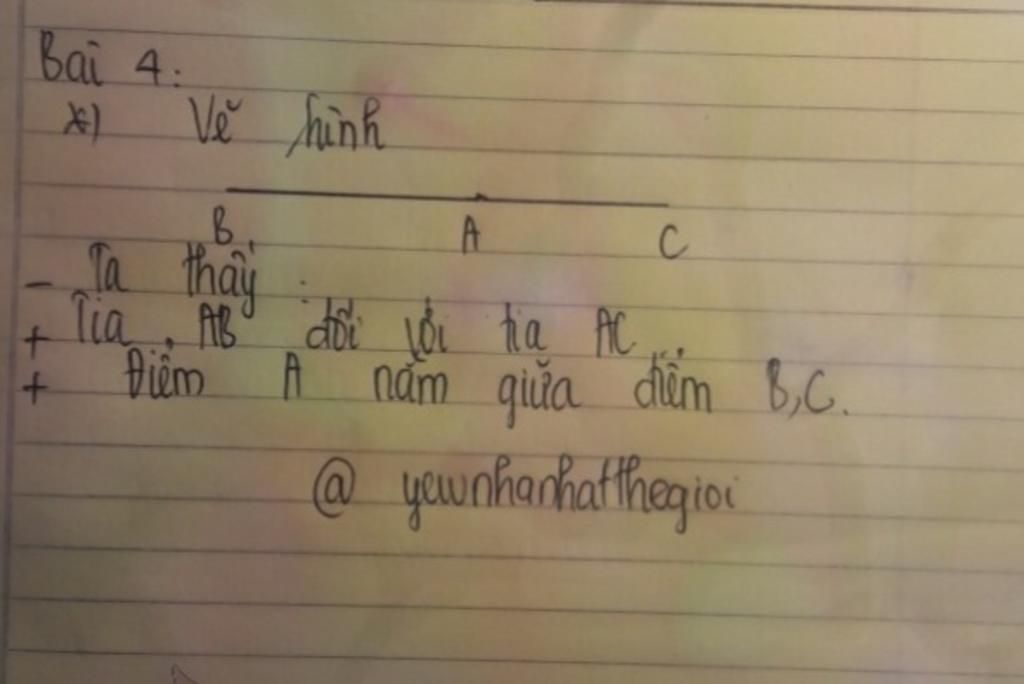 Bài 4:
*) Vẽ hình
B A C
- Ta thấy :
+ Tia AB đối với tia AC
+ Điểm A nằm giữa điểm B,C.
@ yewnhanhatthegioi